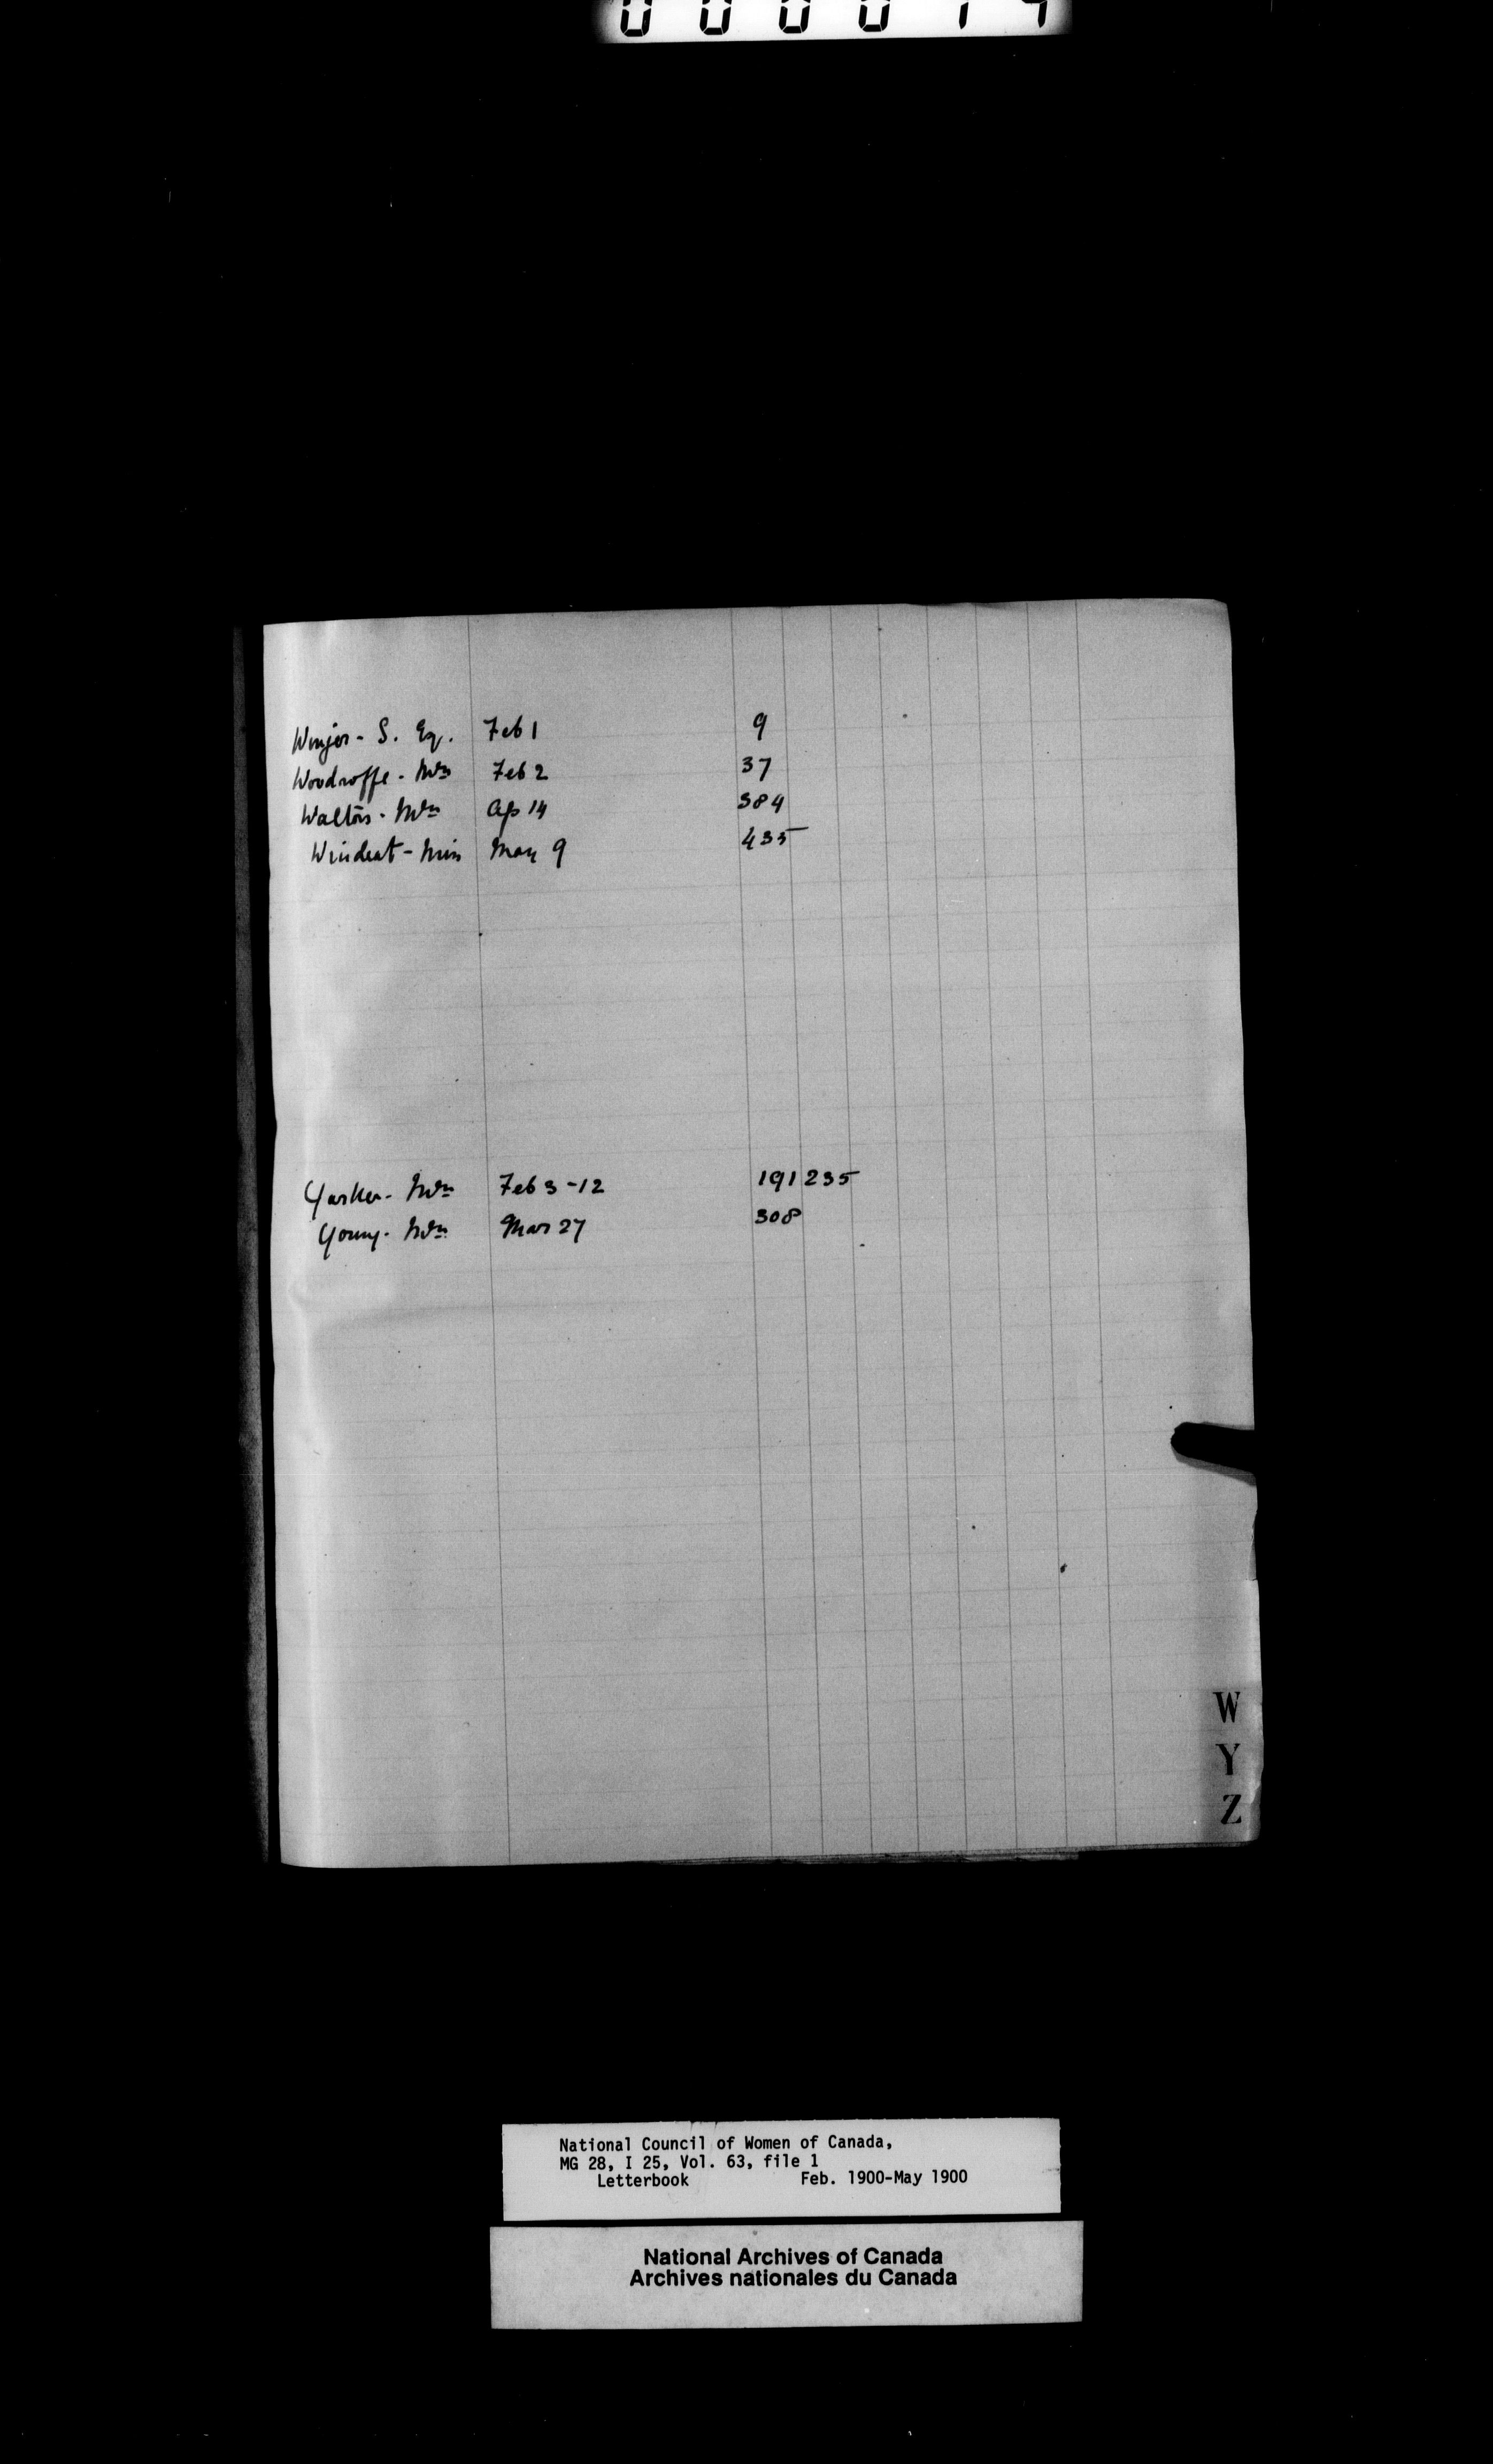 000014
Winjor - S. Eq. Feb 1 9
Woodroffe - Mrs Feb 2 37
Walton - Mrs Ap 14 384
Windeat - Miss May 9 435
Yarker - Mrs Feb 3 - 12 191 235
Young - Mrs Mar 27 308
W
Y
Z
National Council of Women of Canada,
MG 28, I 25, Vol. 63, file 1
Letterbook Feb. 1900-May 1900
National Archives of Canada
Archives nationales du Canada